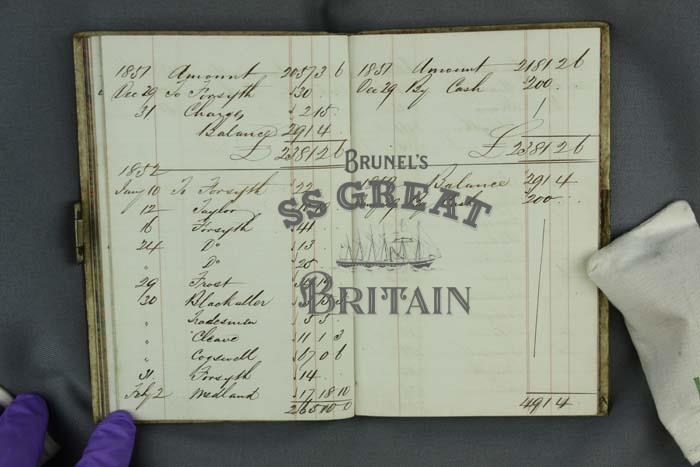 1851 Amount 2057 3 6
Dec 29 To Forsyth 30
31 Charges 2 15
Balance 291 4
£ 2381 2 6
1852
Jany 10 To Forsyth 22
12 Taylor
16 Forsyth 41
24 Do 13
" Do 25
29 Frost
30 Blackaller
" Tradesmen 5 5
" Cleave 11 1 3
" Cogswell 17 0 6
31 Forsyth 14
Feby 2 Medland 17 18 10
265 10 0
1851 Amount 2181 2 6
Dec 29 By Cash 200
£ 2381 2 6
Balance 291 4
200
491 4
BRUNEL'S
SS GREAT
BRITAIN